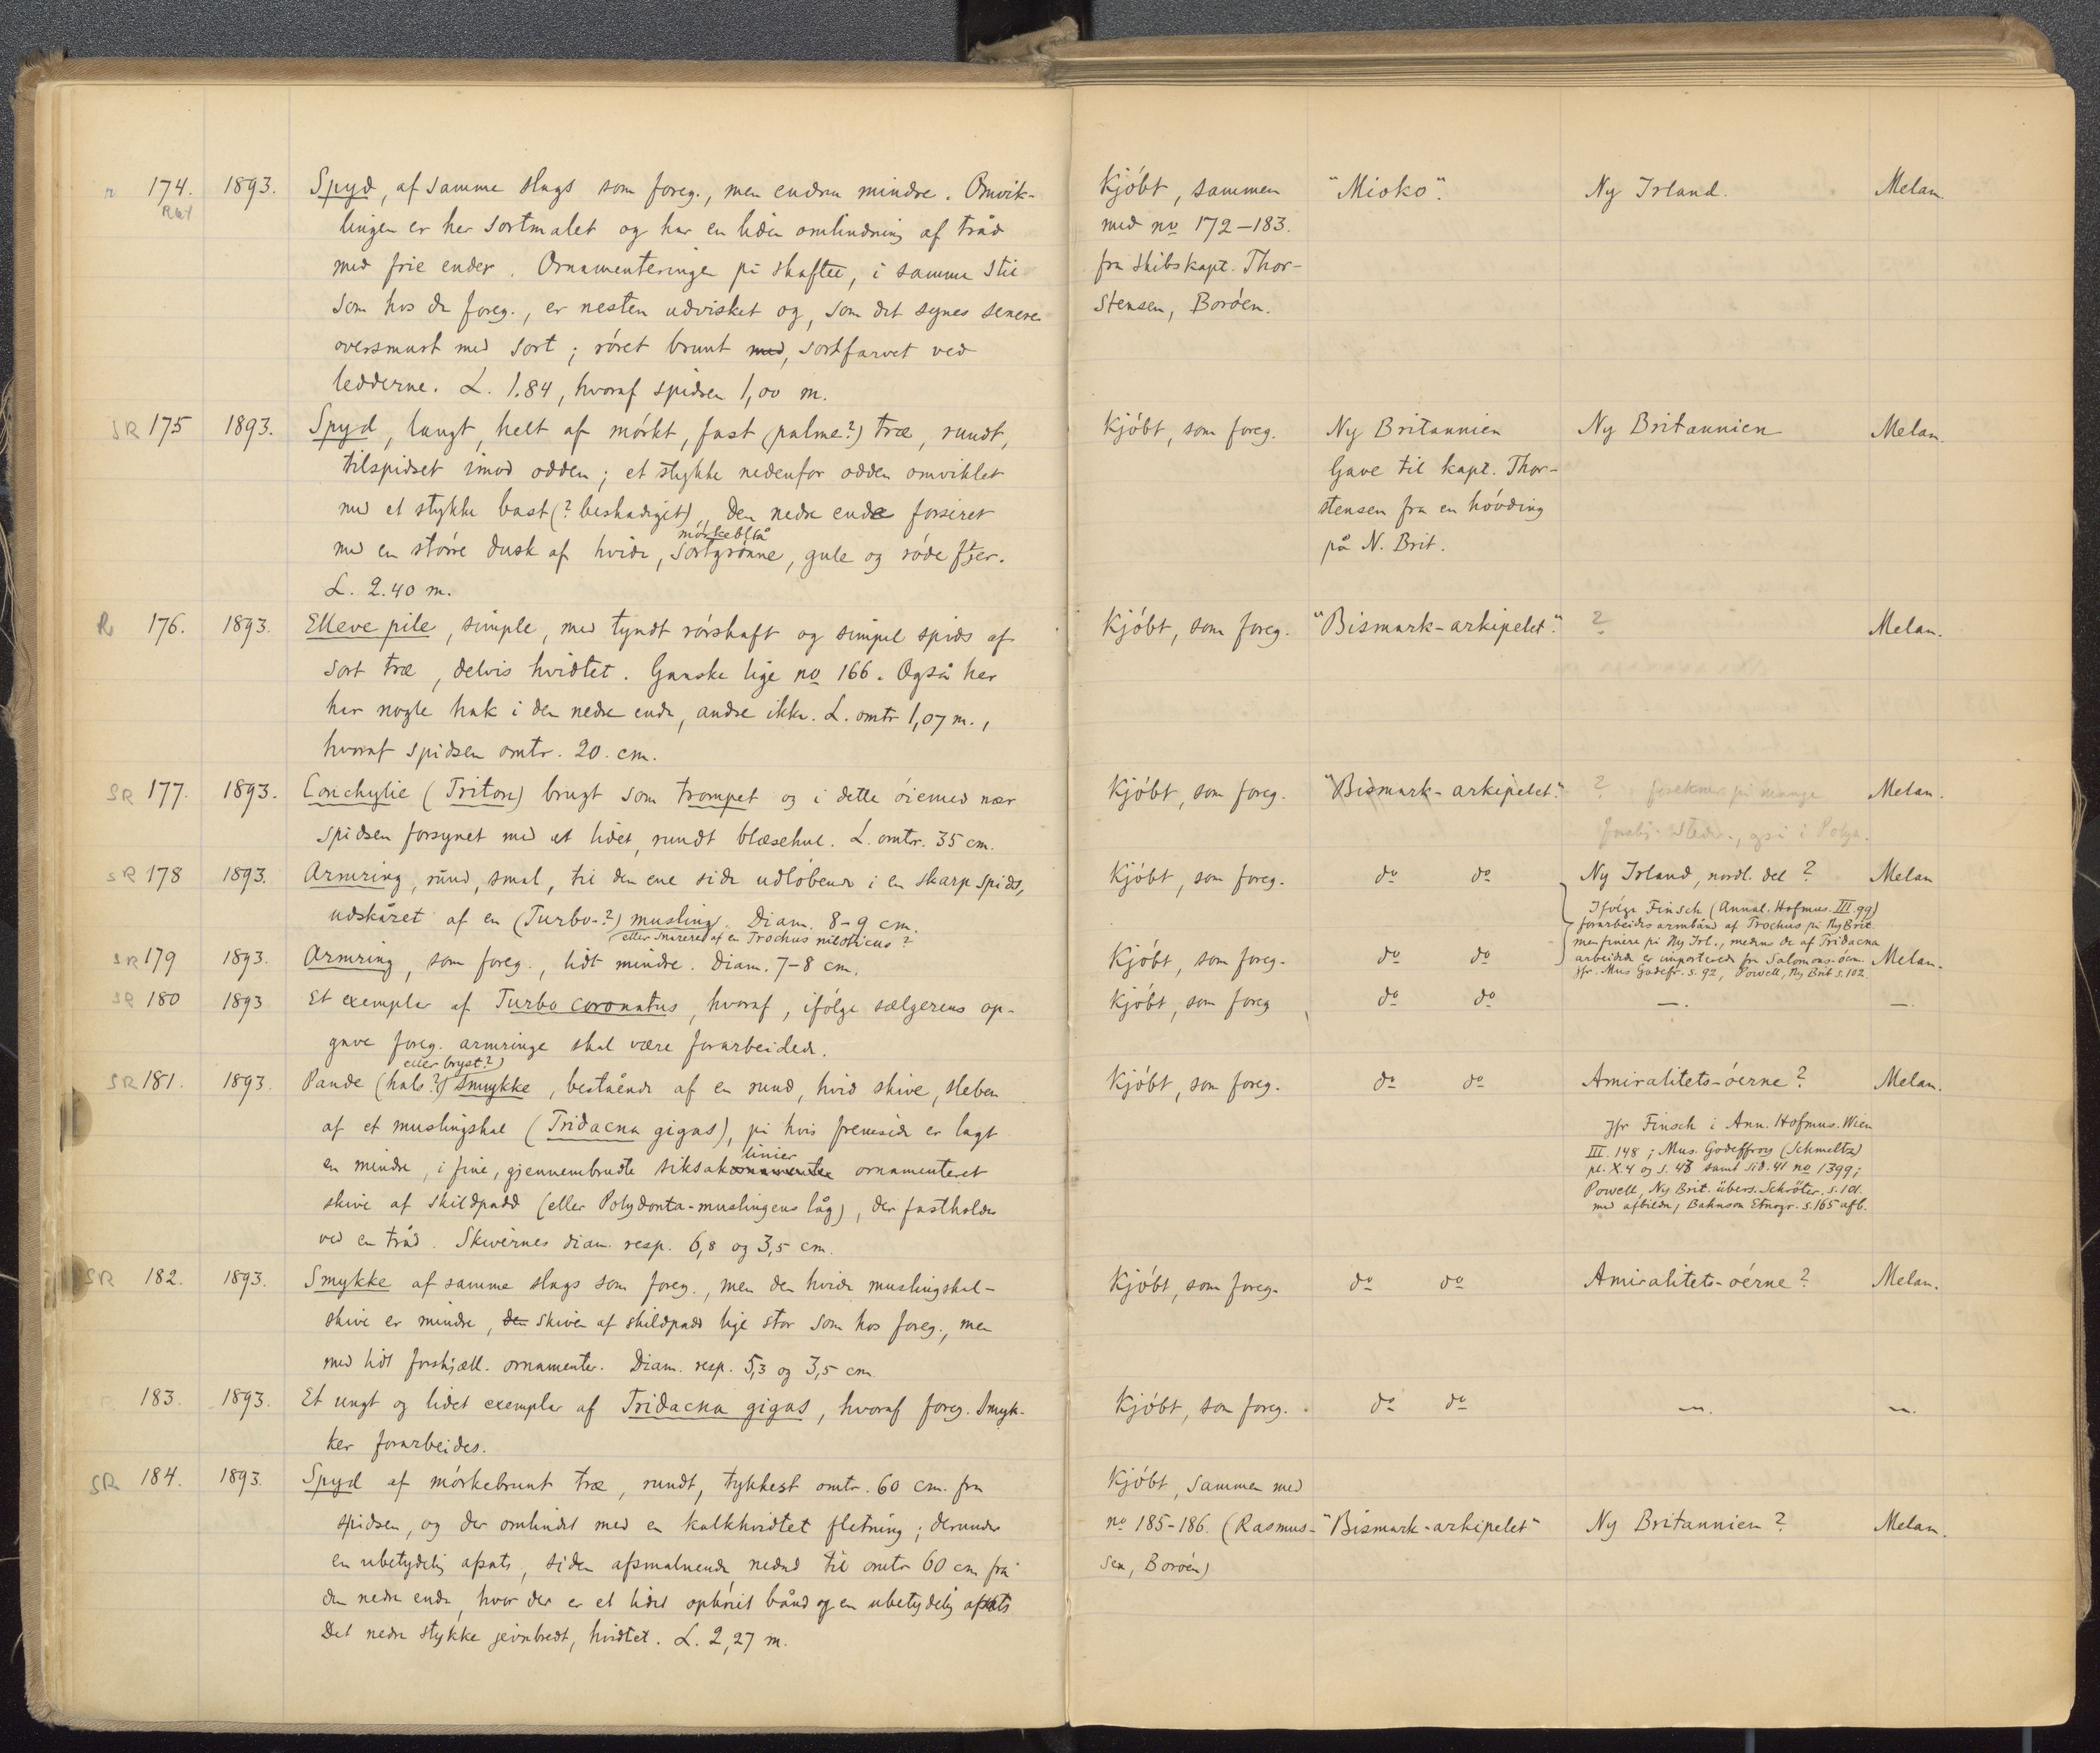 174. 1893. Spyd, af samme slags som foreg., men endnu mindre. Omvik- Kjöbt, sammen "Mioko". Ny Irland. Melan.
lingen er her sortmalet og har en liden omlindning af tråd med no 172–183.
med frie ender. Ornamenteringen på skaftet, i samme stil fra skibskapt. Thor-
som hos de foreg., er nesten udvisket og, som det synes senere stensen, Boröen.
oversmurt med sort; röret brunt med, sortfarvet ved
ledderne. L. 1.84, hvoraf spidsen 1,00 m.
SR 175 1893. Spyd, langt, helt af mörkt, fast (palme?) træ, rundt, Kjöbt, som foreg. Ny Britannien Ny Britannien Melan.
tilspidset imod odden; et stykke nedenfor odden omviklet Gave til kapt. Thor-
med et stykke bast (? beskadiget), den nedre ende forsiret stensen fra en hövding
mörkeblå
med en större dusk af hvide, sortgrönne, gule og röde fjer. på N. Brit.
L. 2.40 m.
R 176. 1893. Elleve pile, simple, med tyndt rörskaft og simpel spids af Kjöbt, som foreg. "Bismark-arkipelet". ? Melan.
sort træ, delvis hvidtet. Ganske lige no 166. Også her
har nogle hak i den nedre ende, andre ikke. L. omtr 1,07 m.,
hvoraf spidsen omtr. 20. cm.
SR 177. 1893. Conchylie (Triton) brugt som trompet og i dette öiemed nær Kjöbt, som foreg. "Bismark-arkipelet". ? forekmr på mange Melan.
spidsen forsynet med et lidet, rundt blæsehul. L. omtr. 35 cm. i Polyn.
SR 178 1893. Armring, rund, smal, til den ene side udlöbende i en skarp spids, Kjöbt, som foreg. do do Ny Irland, nordl. del? Melan
udskåret af en (Turbo-?) musling. Diam. 8–9 cm. Ifölge Finsch (Annal. Hofmus. III. 99)
eller snarere af en Trochus niloticus? forarbeides armbånd af Trochus på Ny Brit.
men finere på Ny Irl., medens de af Tridacna
SR 179 1893. Armring, som foreg., lidt mindre. Diam. 7–8 cm. Kjöbt, som foreg. do do arbeidede er importerede fra Salomons-öern. Melan.
jfr. Mus Godefr. s. 92, Powell, Ny Brit s. 102.
SR 180 1893 Et exemplar af Turbo coronatus, hvoraf, ifölge sælgerens op- Kjöbt, som foreg do do —. —.
gave foreg. armringe skal være forarbeidede.
eller bryst?)
SR 181. 1893. Pande (hals?) smykke, bestående af en rund, hvid skive, sleben Kjöbt, som foreg. do do Amiralitets-öerne? Melan.
af et muslingskal (Tridacna gigas), på hvis fremside er lagt Jfr Finsch i Ann. Hofmus. Wien
linier III. 148; Mus. Godeffroy (Schmeltz)
en mindre, i fine, gjennembrudte siksakornamenter ornamenteret pl. X.4 og s. 43 samt sid. 41 no 1399;
skive af skildpadd (eller Polydonta-muslingens låg), der fastholdes Powell, Ny Brit. übers. Schröter. s. 101.
med afbilden, Bahnson Etnogr. s. 165 afb.
ved en tråd. Skivernes diam. resp. 6,8 og 3,5 cm.
SR 182. 1893. Smykke af samme slags som foreg., men den hvide muslingskal- Kjöbt, som foreg. do do Amiralitets-öerne? Melan.
skive er mindre, den skiven af skildpadd lige stor som hos foreg., men
med lidt forskjæll. ornamenter. Diam. resp. 5,3 og 3,5 cm.
183. 1893. Et ungt og lidet exemplar af Tridacna gigas, hvoraf foreg. smyk- Kjöbt, som foreg. do do —. —.
ker forarbeides.
SR 184. 1893. Spyd af mörkebrunt træ, rundt, tykkest omtr. 60 cm. fra Kjöbt, sammen med
spidsen, og der omlindet med en kalkhvidtet fletning; derunder no 185–186. (Rasmus- "Bismark-arkipelet" Ny Britannien? Melan.
en ubetydelig afsats, siden afsmalnende nedad til omtr 60 cm fra sen, Boröen)
den nedre ende, hvor der er et lidet ophöiet bånd og en ubetydelig afsats
Det nedre stykke jevnbredt, hvidtet. L. 2,27 m.